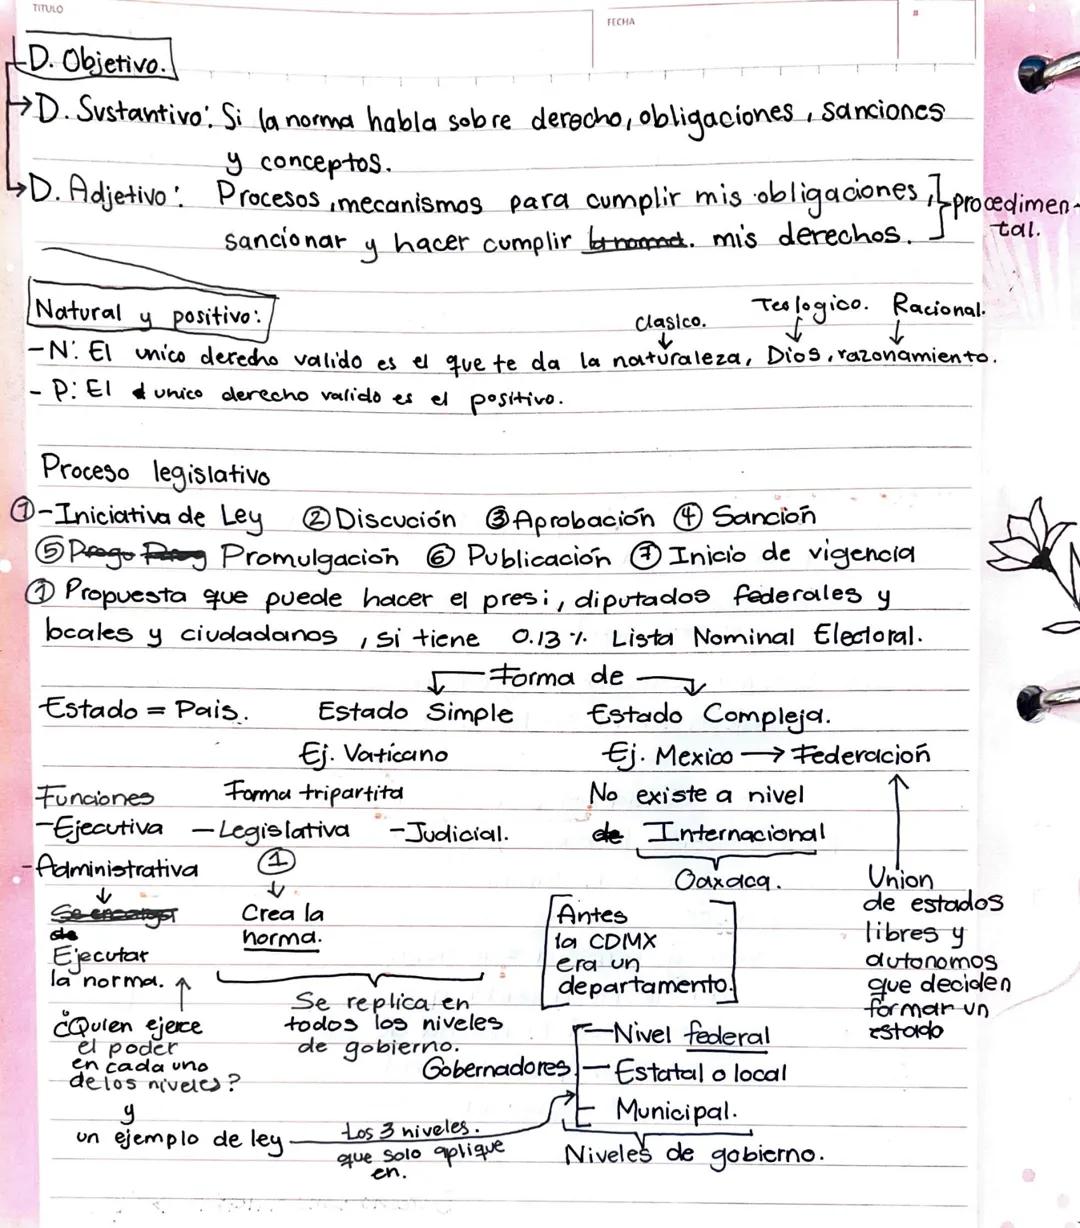 TITULO
FECHA
D. Objetivo.
D. Sustantivo: Si la norma habla sobre derecho, obligaciones, sanciones
y conceptos.
D. Adjetivo: Procesos, mecanismos para cumplir mis obligaciones, procedimen-
sancionar y hacer cumplir la norma. mis derechos. tal.
Natural y positivo:
Clasico. Teologico. Racional.
- N: El unico derecho valido es el que te da la naturaleza, Dios, razonamiento.
- P: El unico derecho valido es el positivo.
Proceso legislativo
①-Iniciativa de Ley ② Discución ③ Aprobación ④ Sanción
⑤ Promulgación ⑥ Publicación ⑦ Inicio de vigencia
① Propuesta que puede hacer el presi, diputados federales y
locales y ciudadanos, si tiene 0.13 % Lista Nominal Electoral.
Forma de
Estado = Pais. Estado Simple Estado Compleja.
Ej. Vaticano Ej. Mexico → Federación
Funciones Forma tripartita No existe a nivel
- Ejecutiva - Legislativa - Judicial. de Internacional
- Administrativa ①
Oaxaca.
Se encarga
de
Ejecutar
la norma.
Crea la
norma.
Antes
la CDMX
era un
departamento.
Union
de estados
libres y
autonomos
que deciden
formar un
estado
Se replica en
todos los niveles
de gobierno.
¿Quien ejerce
el poder
en cada uno
de los niveles?
y
un ejemplo de ley
Los 3 niveles.
que solo aplique
en.
Gobernadores
Nivel federal
Estatal o local
Municipal.
Niveles de gobierno.